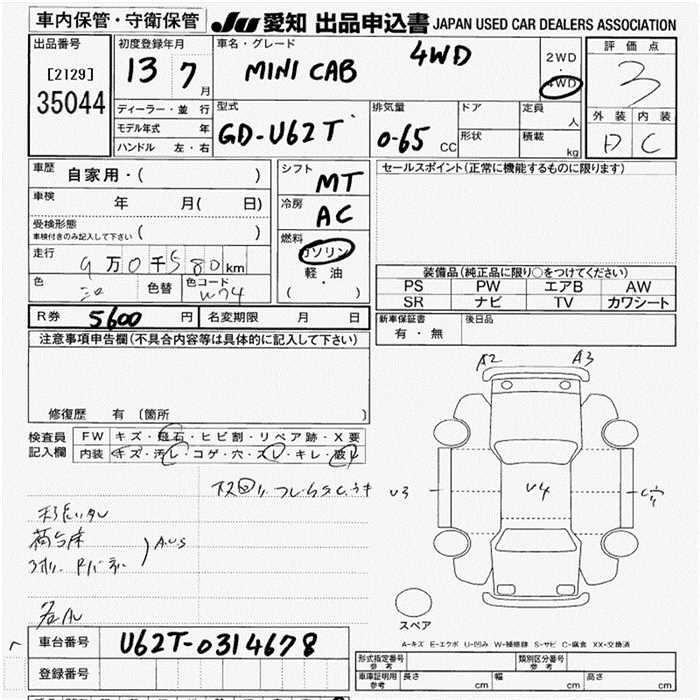 車内保管・守衛保管
JU 愛知 出品申込書 JAPAN USED CAR DEALERS ASSOCIATION
出品番号
[2129]
35044
初度登録年月
13 7月
車名・グレード
MINI CAB 4WD
2WD
・
4WD
評価点
3
外装 内装
D C
ディーラー・並行
モデル年式 年
ハンドル 左・右
型式
GD-U62T
排気量
0-65 CC
ドア
形状
定員
人
積載
kg
車歴 自家用・( )
車検 年 月( 日)
受検形態
車検付きのみ記入して下さい ( )
走行 9万0千580km
色 色替 色コード
W74
シフト
MT
冷房
AC
燃料
ガソリン
軽・油
( )
セールスポイント(正常に機能するものに限ります)
装備品(純正品に限り○をつけてください)
PS PW エアB AW
SR ナビ TV カワシート
R券 5600 円 名変期限 月 日
新車保証書
有・無
後日品
注意事項申告欄(不具合内容等は具体的に記入して下さい)
修復歴 有 〔箇所 〕
検査員
記入欄
FW キズ・飛石・ヒビ割・リペア跡・X要
内装 キズ・汚レ・コゲ・穴・スレ・キレ・破レ
A2 A3
U3 U4
荷台床
AUS
スペア
A-キズ E-エクボ U-凹み W-補修跡 S-サビ C-腐食 XX-交換済
車台番号 U62T-0314678
登録番号
形式指定番号
参考
類別区分番号
参考
車庫証明用
参考
長さ cm 幅 cm 高さ cm